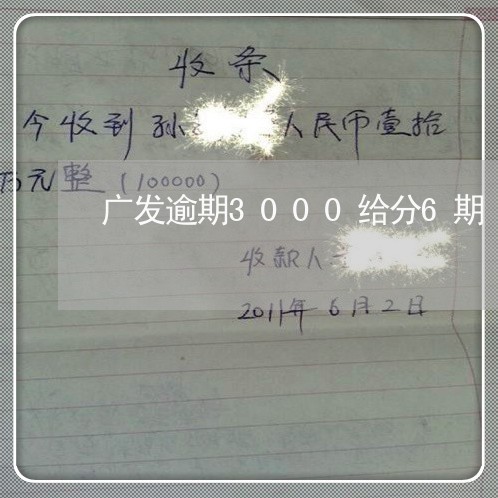 收条
今收到孙 人民币壹拾
万元整(100000)
广发逾期3000给分6期
收款人
2011年6月2日